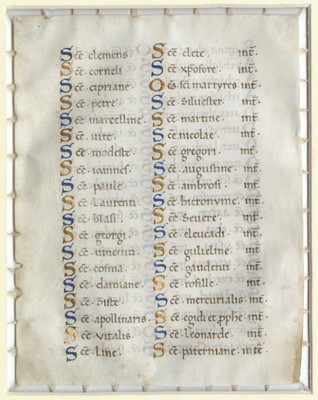 Scē clemens.
Scē corneli
Scē cipriane.
Scē petre.
Scē marcelline.
Scē uite.
Scē modeste.
Scē ioannes.
Scē paule.
Scē Laurenti
Scē blasi.
Scē georgi.
Scē uincenti.
Scē cosma.
Scē damiane.
Scē Siste.
Scē apollinaris.
Scē vitalis.
Scē line.
Scē clete. int̄.
Scē xp̄ofore. int̄.
Oēs sc̄i martyres. int̄.
Scē siluester. int̄.
Scē martine. int̄.
Scē nicolae. int̄.
Scē gregori. int̄.
Scē augustine. int̄.
Scē ambrosi. int̄.
Scē hieronyme. int̄.
Scē Seuere. int̄.
Scē eleucadi. int̄.
Scē gulielme. int̄.
Scē gaudenti int̄.
Scē rofille. int̄.
Scē mercurialis. int̄.
Scē egidi et pphe int̄.
Scē Leonarde. int̄.
Scē paterniane. intē.